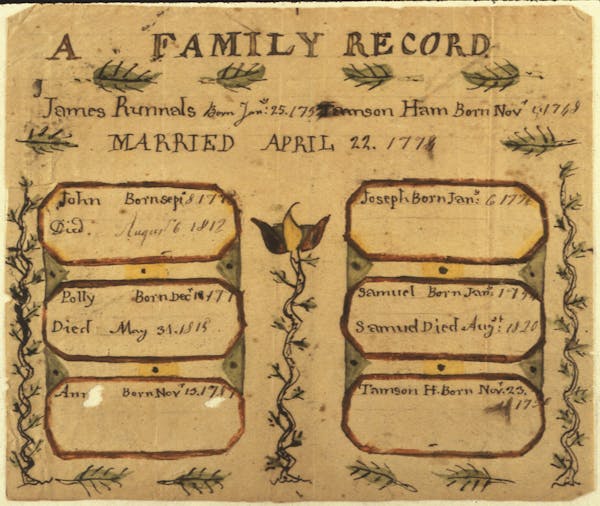 A FAMILY RECORD
James Runnals Born Janʸ: 25. Tamson Ham Born Novʳ 1748
MARRIED APRIL 22.
John Born Sepᵗ 8
Died. August 6. 1812
Polly Born Decʳ
Died May 31. 1815
Ann Born Novʳ 13.
Joseph Born Janʸ: 6
Samuel Born Janʸ:
Samuel Died Augˢᵗ: 1820
Tamson H. Born Novʳ. 23.